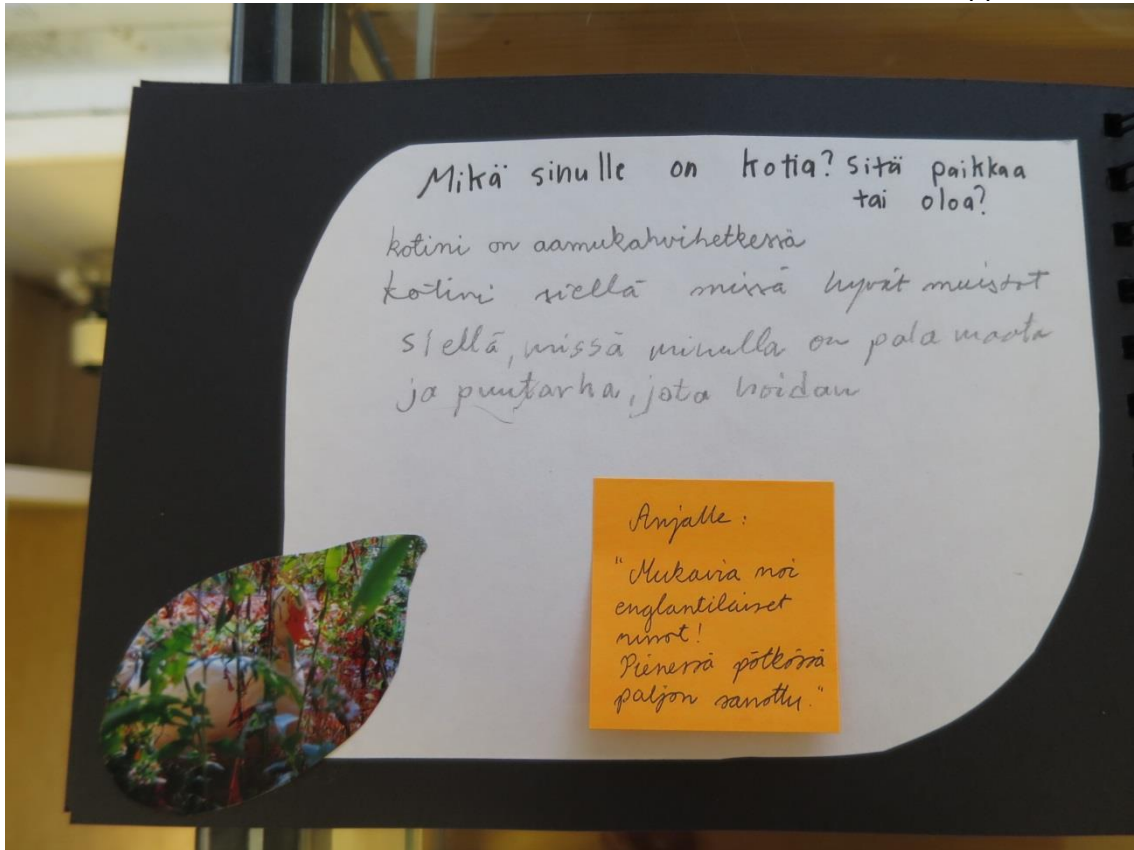 Mikä sinulle on kotia? Sitä paikkaa
tai oloa?
kotini on aamukahvihetkessä
kotini siellä missä hyvät muistot
siellä, missä minulla on pala maata
ja puutarha, jota hoidan
Anjalle:
"Mukavia noi
englantilaiset
runot!
Pienessä pötkössä
paljon sanottu."